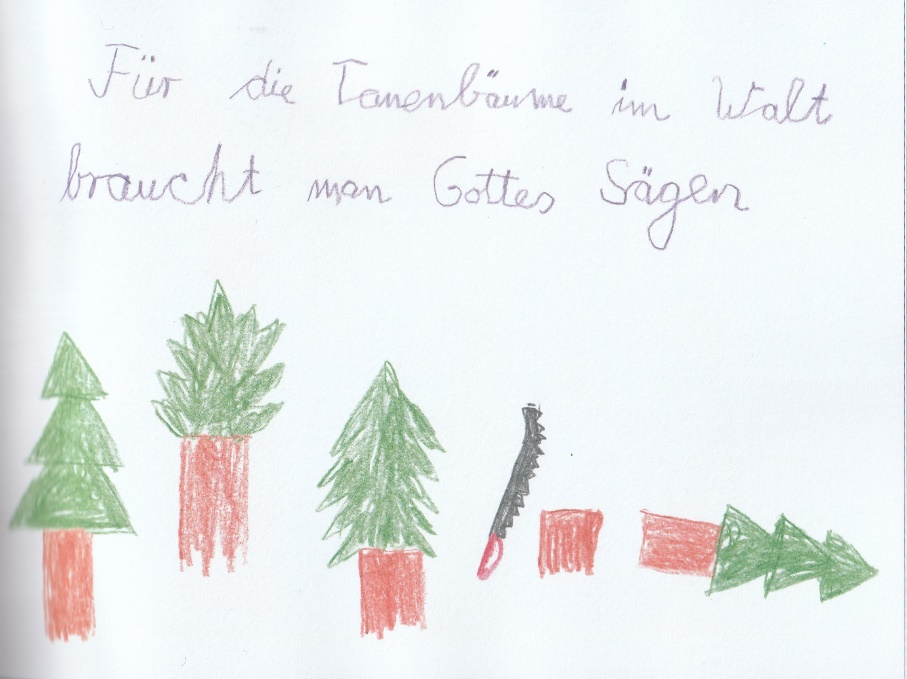 Für die Tanenbäume im Walt
braucht man Gottes Sägen